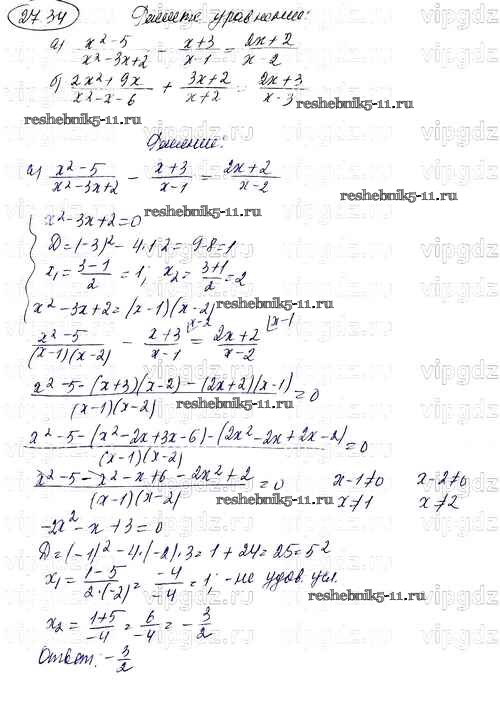 27.34 Решить уравнение:
а) (x²-5)/(x²-3x+2) - (x+3)/(x-1) = (2x+2)/(x-2)
б) (2x²+9x)/(x²-x-6) + (3x+2)/(x+2) = (2x+3)/(x-3)
reshebnik5-11.ru
reshebnik5-11.ru
Решение:
а) (x²-5)/(x²-3x+2) - (x+3)/(x-1) = (2x+2)/(x-2)
reshebnik5-11.ru
x²-3x+2=0
reshebnik5-11.ru
D=(-3)²-4·1·2=9-8=1
x₁=(3-1)/2=1; x₂=(3+1)/2=2
x²-3x+2=(x-1)(x-2)
reshebnik5-11.ru
(x²-5)/((x-1)(x-2)) - (x+3)/(x-1) |x-2 = (2x+2)/(x-2) |x-1
(x²-5-(x+3)(x-2)-(2x+2)(x-1))/((x-1)(x-2))=0
reshebnik5-11.ru
(x²-5-(x²-2x+3x-6)-(2x²-2x+2x-2))/((x-1)(x-2))=0
(x²-5-x²-x+6-2x²+2)/((x-1)(x-2))=0 x-1≠0 x-2≠0
reshebnik5-11.ru
x≠1 x≠2
-2x²-x+3=0
D=(-1)²-4·(-2)·3=1+24=25=5²
x₁=(1-5)/(2·(-2))=(-4)/(-4)=1; -не удов. усл.
reshebnik5-11.ru
x₂=(1+5)/(-4)=6/(-4)=-3/2
Ответ: -3/2